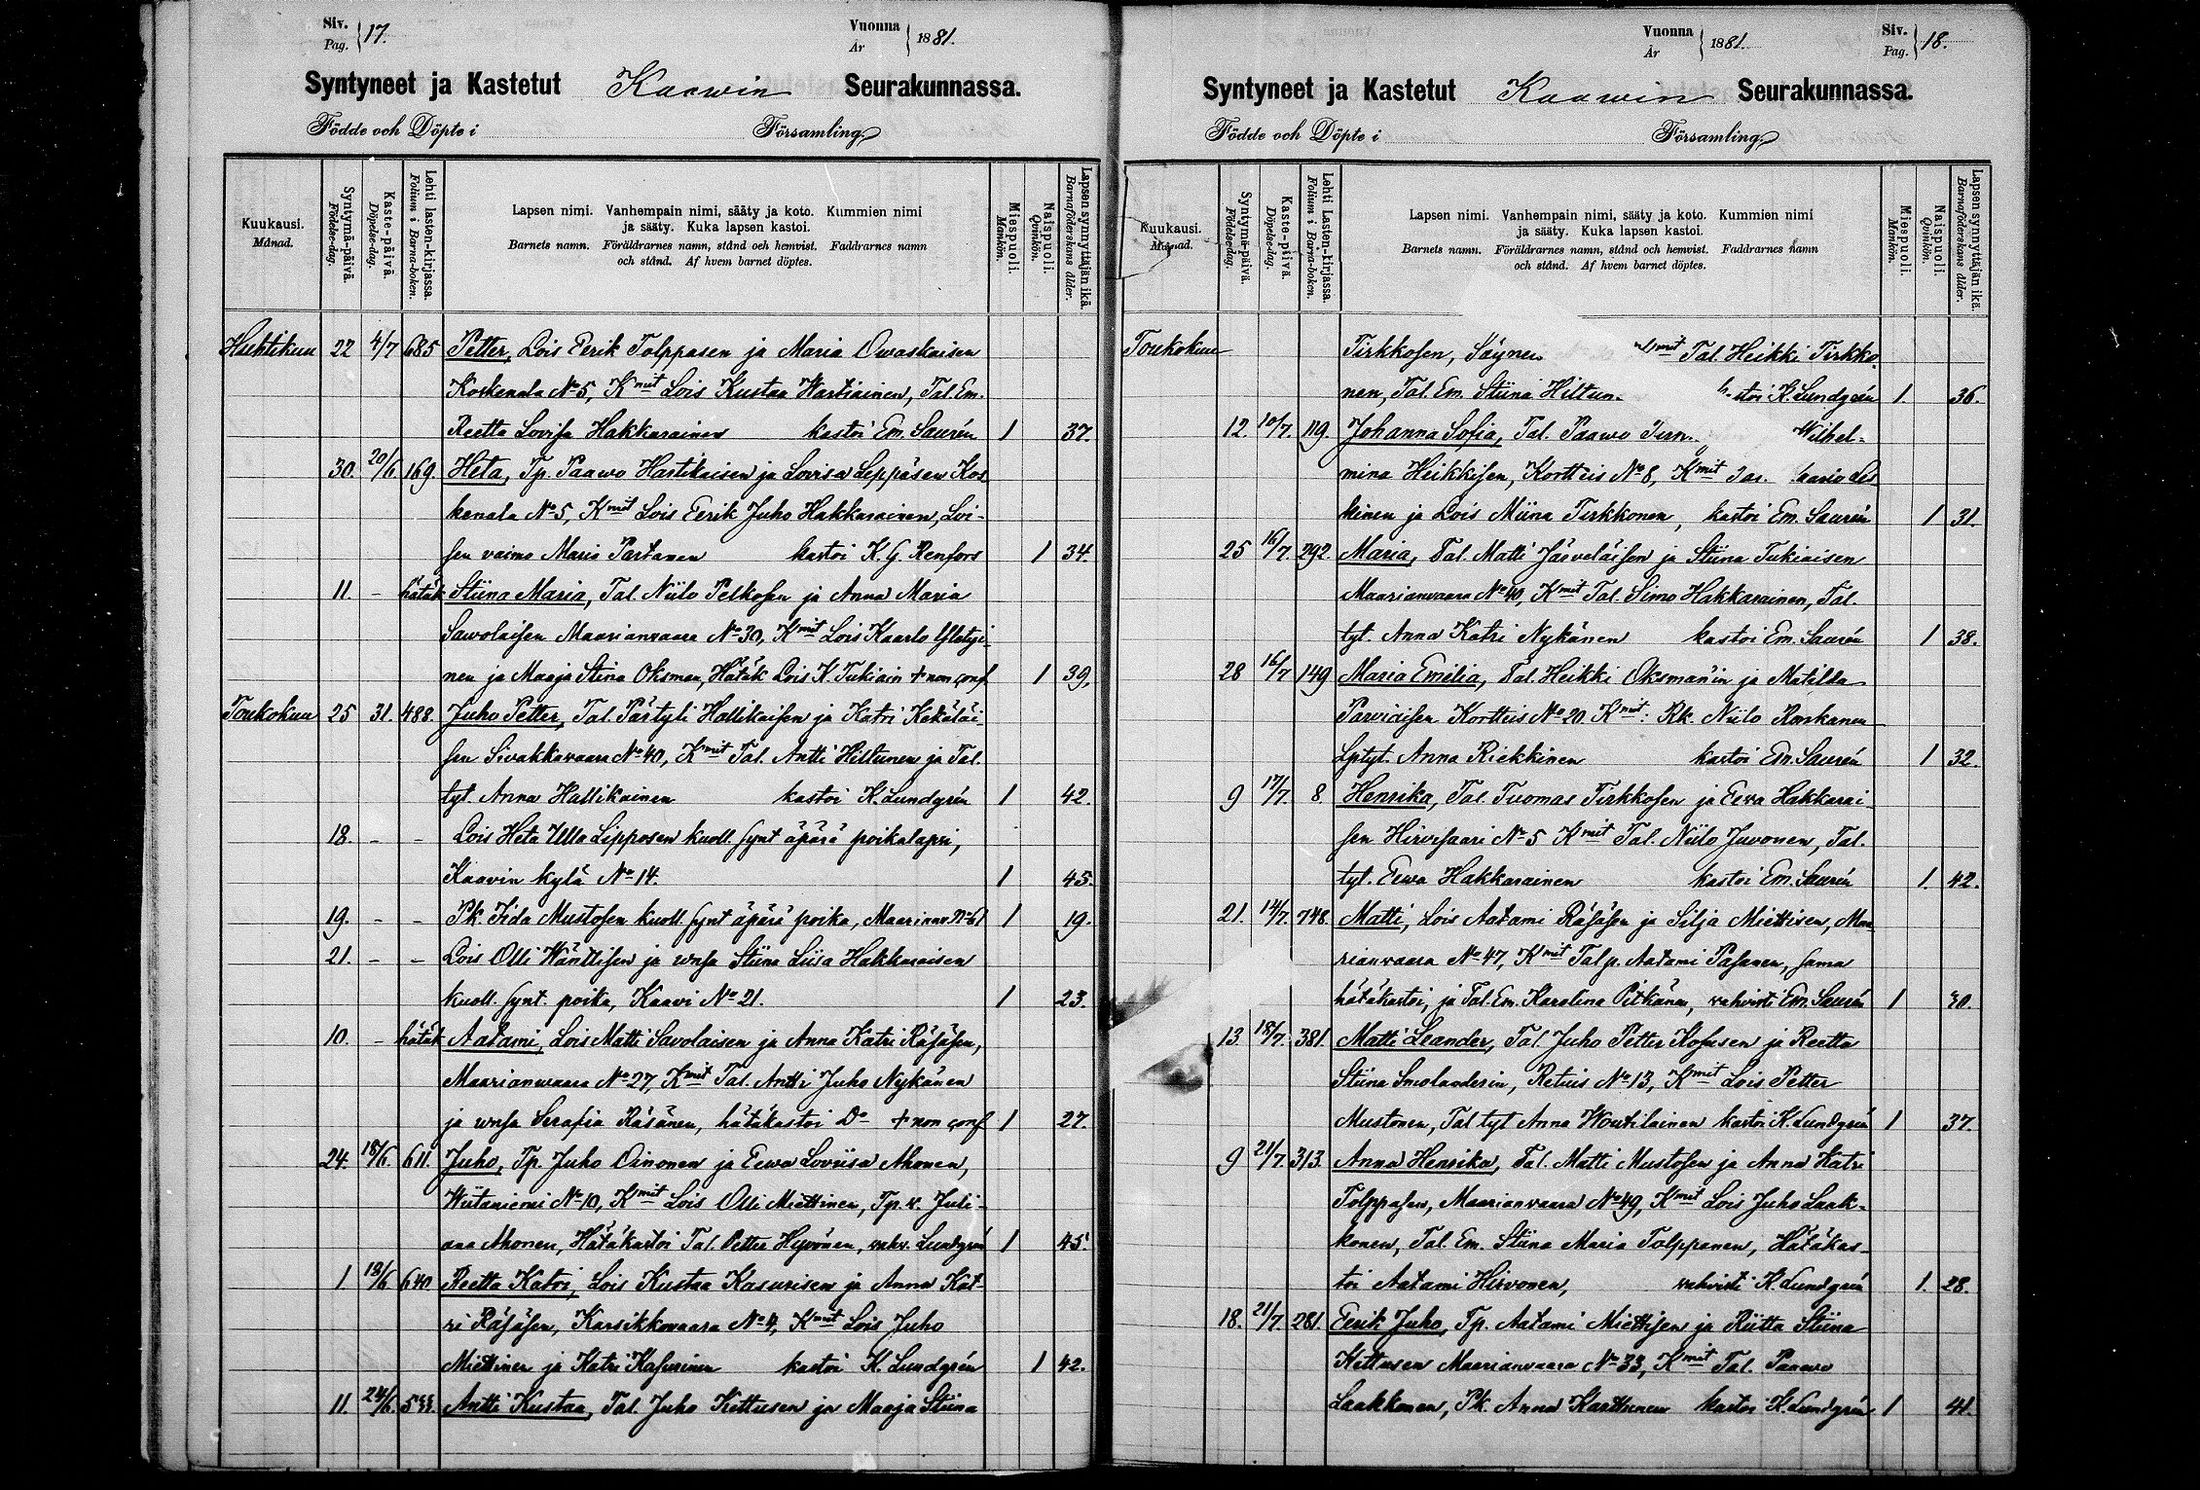 Siv. Pag. 17.
Vuonna År 1881.
Syntyneet ja Kastetut Kaawin Seurakunnassa.
Födde och Döpte i Församling
Kuukausi. Månad.
Syntymä-päivä. Födelse-dag.
Kaste-päivä. Döpelse-dag.
Lehti lasten-kirjassa. Folium i Barna-boken.
Lapsen nimi. Vanhempain nimi, sääty ja koto. Kummien nimi
ja sääty. Kuka lapsen kastoi.
Barnets namn. Föräldrarnes namn, stånd och hemvist. Faddrarnes namn
och stånd. Af hvem barnet döptes.
Miespuoli. Mankön.
Naispuoli. Qvinkön.
Lapsen synnyttäjän ikä. Barnaföderskans ålder.
Huhtikuu 22 4/7 685 Petter, Lois Eerik Tolppasen ja Maria Owaskaisen
Koskenala No 5, Kmit Lois Kustaa Wartiainen, Tal. Em.
Reetta Lovisa Hakkarainen kastoi Em. Saurén 1 37.
30. 20/6 169. Heta, Tp. Paawo Hartikaisen ja Lovisa Leppäsen Kos
kenala No 5, Kmit Lois Eerik Juho Hakkarainen, Loi-
sen vaimo Maria Partanen kastoi K. G. Renfors 1 34.
11. - hätäk Stiina Maria, Tal. Niilo Pelkosen ja Anna Maria
Sawolaisen Maarianvaara No 30, Kmit Lois Kaarlo
nen ja Maaja Stina Oksman, Hätäk Lois K. Tukiain + non conf 1 39.
Toukokuu 25 31. 488. Juho Petter, Tal. Pärtyli Hallikaisen ja Katri Kekäläi-
sen Sivakkavaara No 40, Kmit Tal. Antti Hiltunen ja Tal.
tyt. Anna Hallikainen kastoi K. Lundgrén 1 42.
18. - - Lois Heta Ulla Lipposen kuoll. synt äpärä poikalapsi,
Kaavin kylä No 14. 1 45.
19. - - Pk. Iida Mustosen kuoll synt äpärä poika, Maarianv. No 61 1 19.
21. - - Lois Olli Wänttisen ja wmsa Stiina Liisa Hakkaraisen
kuoll. synt. poika, Kaavi No 21. 1 23.
10. - hätäk Aatami, Lois Matti Savolaisen ja Anna Katri Räsäsen,
Maarianwaara No 27, Kmit Tal. Antti Juho Nykänen
ja wmsa Serafia Räsänen, hätäkastoi Do + non conf 1 27.
24. 18/6 611. Juho, Tp. Juho Oinonen ja Eewa Loviisa Ahonen,
Wiitaniemi No 10, Kmit Lois Olli Miettinen, Tp. v. Juli-
ana Ahonen, Hätäkastoi Tal. Petter Hyvönen, vahv. Lundgrén 1 45.
1. 18/6 640 Reetta Katri, Lois Kustaa Kasurisen ja Anna Kat-
ri Räsäsen, Karsikkovaara No 4, Kmit Lois Juho
Miettinen ja Katri Kasurinen kastoi K. Lundgrén 1 42.
11. 24/6. 533. Antti Kustaa, Tal. Juho Kettusen ja Maaja Stiina
Vuonna År 1881.
Siv. Pag. 18.
Syntyneet ja Kastetut Kaawin Seurakunnassa.
Födde och Döpte i Församling
Kuukausi. Månad.
Syntymä-päivä. Födelse-dag.
Kaste-päivä. Döpelse-dag.
Lehti Lasten-kirjassa. Folium i Barna-boken.
Lapsen nimi. Vanhempain nimi, sääty ja koto. Kummien nimi
ja sääty. Kuka lapsen kastoi.
Barnets namn. Föräldrarnes namn, stånd och hemvist. Faddrarnes namn
och stånd. Af hvem barnet döptes.
Miespuoli. Mankön.
Naispuoli. Qvinkön.
Lapsen synnyttäjän ikä. Barnaföderskans ålder.
Toukokuu Tirkkosen, Säynei Kmit Tal. Heikki Tirkko
nen, Tal. Em. Stiina Hiltun. stoi K. Lundgrén 1. 36.
12. 10/7. 119. Johanna Sofia, Tal. Paawo Wilhel-
mina Heikkisen, Kortteis No 8, Kmit
kinen ja Lois Miina Tirkkonen, kastoi Em. Saurén 1 31.
25 16/7 292. Maria, Tal. Matti Järveläisen ja Stiina Tukiaisen
Maarianvaara No 40, Kmit Tal. Simo Hakkarainen, Tal.
tyt. Anna Katri Nykänen kastoi Em. Saurén 1 38.
28 16/7 149 Maria Emilia, Tal. Heikki Oksman'in ja Matilda
Parviaisen Kortteis No 20. Kmit: Rk. Niilo Ronkanen
Lptyt. Anna Riekkinen kastoi Em. Saurén 1 32.
9 17/7. 8. Henrika, Tal. Tuomas Tirkkosen ja Eeva Hakkarai
sen Hirvisaari No 5 Kmit Tal. Niilo Juvonen, Tal.
tyt. Eewa Hakkarainen kastoi Em. Saurén 1. 42.
21. 14/7. 748. Matti, Lois Aatami Räsäsen ja Silja Miettisen, Maa
rianvaara No 47, Kmit Tal p. Aatami Pasanen, sama
hätäkastoi, ja Tal. Em. Karolina Pitkänen, vahvisti Em. Saurén 1 30.
13. 18/7. 381. Matti Leander, Tal. Juho Petter Kososen ja Reetta
Stiina Smolanderin, Retuis No 13, Kmit Lois Petter
Mustonen, Tal tyt Anna Woutilainen kastoi K. Lundgrén 1 37.
9 21/7. 313. Anna Henrika, Tal. Matti Mustosen ja Anna Katri
Tolppasen, Maarianvaara No 49, Kmit Lois Juho Laak-
konen, Tal. Em. Stiina Maria Tolppanen, Hätäkas-
toi Aatami Hirvonen, vahvisti K. Lundgrén 1. 28.
18. 21/7. 281. Eerik Juho, Tp. Aatami Miettisen ja Riitta Stiina
Kettusen Maarianvaara No 33, Kmit Tal. Paawo
Laakkonen, Pk. Anna Karttunen kastoi K. Lundgrén 1 41.